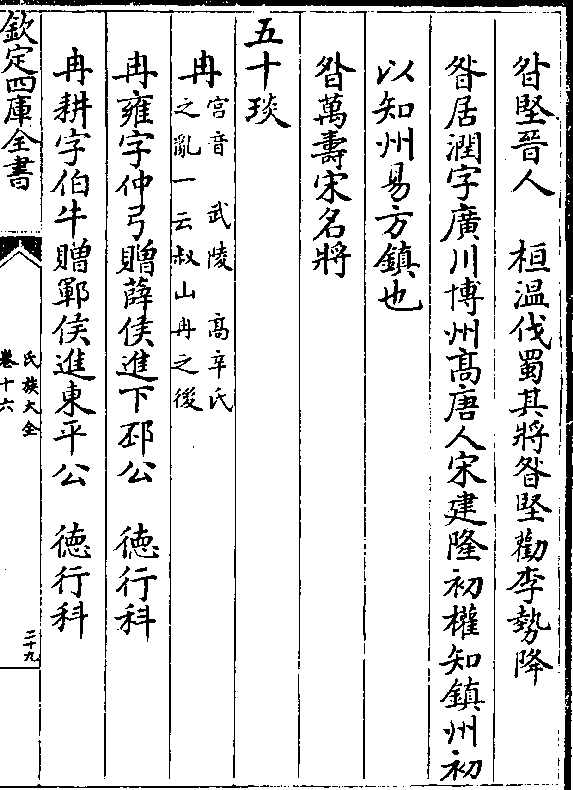 昝堅晉人　桓溫伐蜀其將昝堅勸李勢降
昝居潤字廣川博州高唐人宋建隆初權知鎮州初
以知州易方鎮也
昝萬壽宋名將
五十琰
冉
宫音　武陵　高辛氏
之亂一云叔山冉之後
冉雍字仲弓贈薛侯進下邳公　德行科
冉耕字伯牛贈鄆侯進東平公　德行科
欽定四庫全書
氏族大全
卷十六
二十九